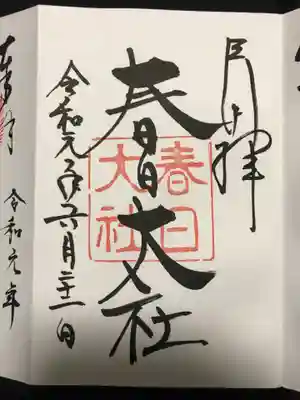 奉拝
春日大社
春日
大社
令和元年六月二十一日
令和元年